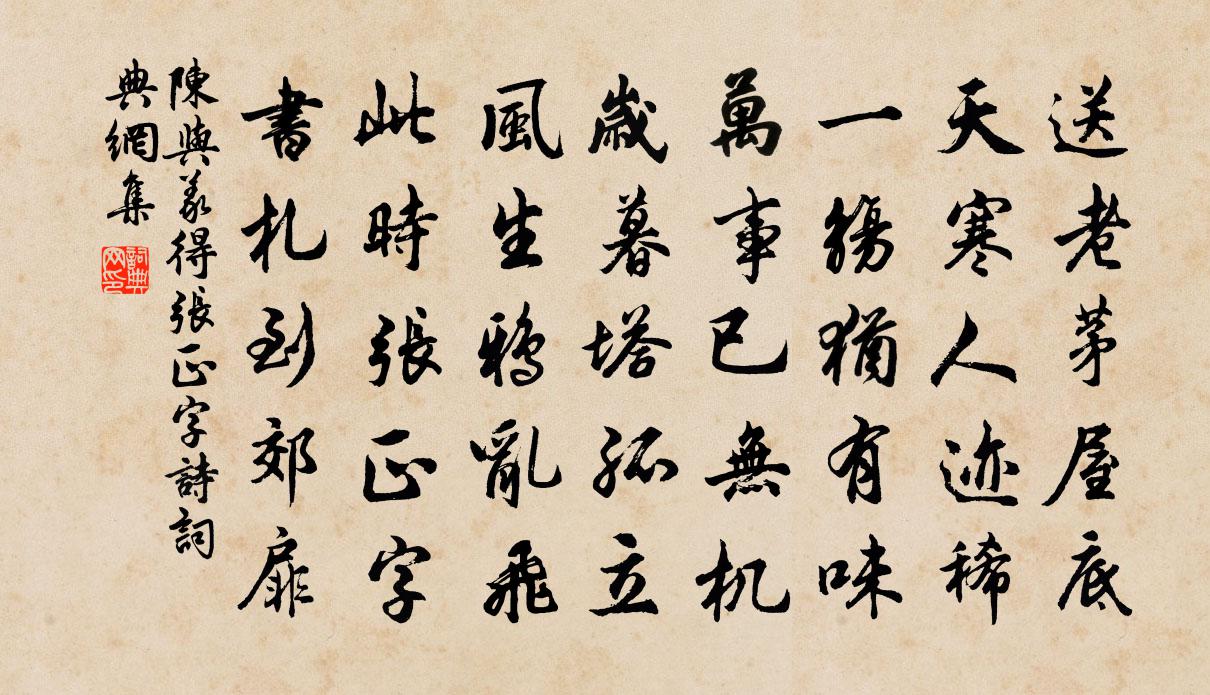 送老茅屋底
天寒人迹稀
一觴猶有味
萬事已無机
歲暮塔孤立
風生鴉亂飛
此時張正字
書札到郊扉
陳與義得張正字詩詞
典網集
詞典
网印